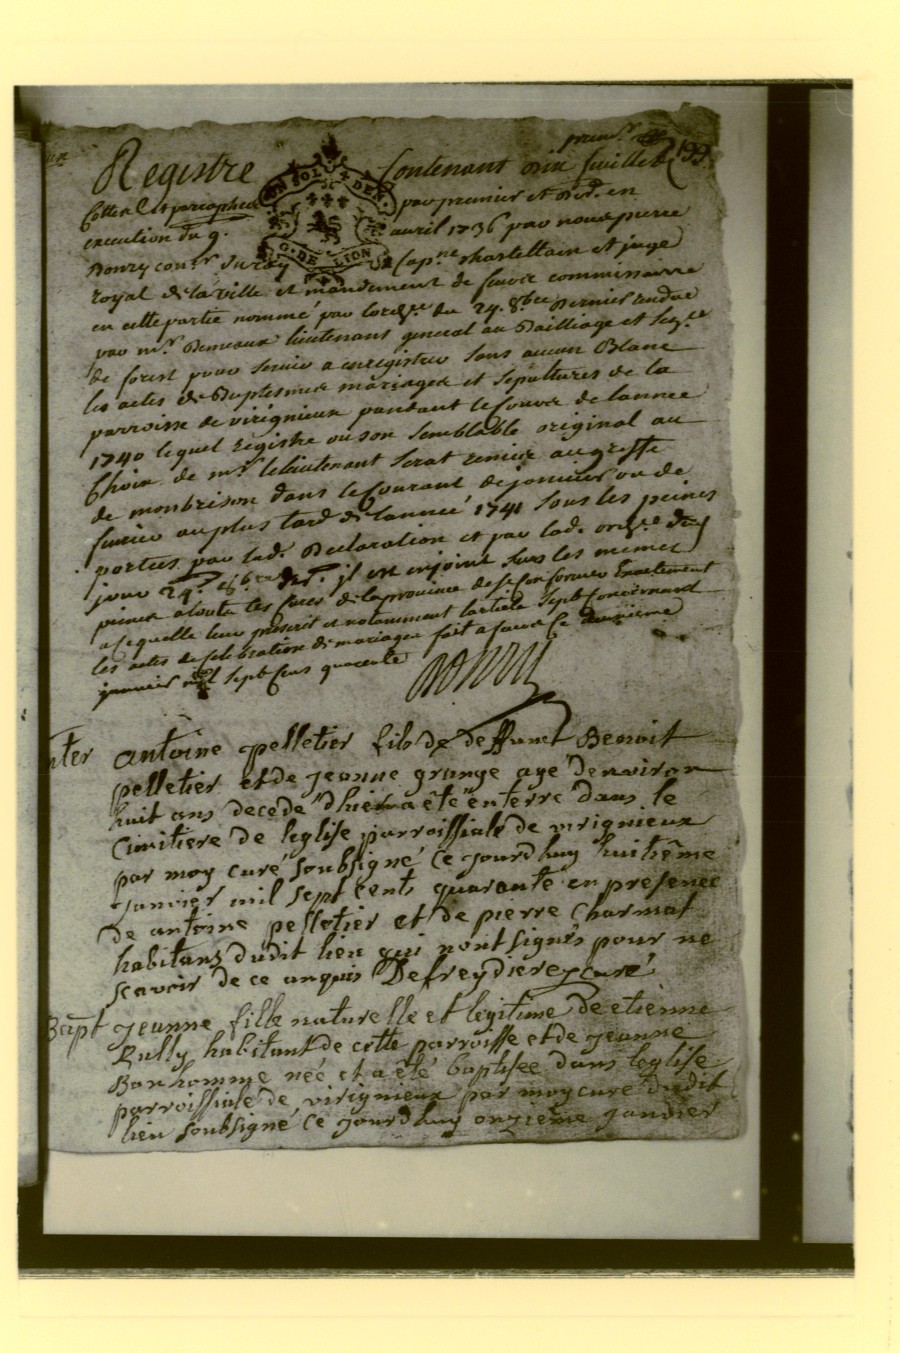 premr 199.
Registre Contenant dix feuillets
Cottes et paraphes par premier et der. en
execution du 9. avril 1736 par nous pierre
Bonry conr. du roy Capne chastellain et juge
royal de la ville et mandement de feurs commissaire
en cette partie nommé par lordce du 24. 8bre dernier rendue
par mr. Demeaux lieutenant general au Bailliage et
de forest pour servir a enregistrer sans aucun Blanc
les actes de Baptesmes mariages et sepultures de la
parroisse de virignieux pendant le Cours de lannee
1740 lequel Registre ou son semblable original au
Choix de mr. le lieutenant sera remis au greffe
de monbrison dans le Courant de janvier ou de
fevrier au plus tard de lannée 1741 sous les peines
portées par lad. Declaration et par lad. ordce du d
jour 24e. 8bre der. il est enjoint sous les memes
peines a touts les Cures de la province de se Conformer Exactement
a ce quelle leur prescrit et notamment larticle sept Concernant
les actes de Celebration de mariages fait a feurs Ce deuxieme
janvier mil sept Cens quarante
Bonry
nter antoine pelletier fils de deffunct Benoit
pelletier et de jeanne grange agé denviron
huit ans decedé d'hier a été enterré dans le
Cimitiere de leglise parroissiale de virignieux
par moy curé soubsigné ce jourdhuy huitième
janvier mil sept cents quarante en presence
de antoine pelletier et de pierre Charmat
habitans dudit lieu qui nont signés pour ne
scavoir de ce enquis Defreydiere curé
Bapt jeanne fille naturelle et legitime de etienne
Rully habitant de cette parroisse et de jeanne
Bonhomme née et a été baptisée dans leglise
parroissiale de virignieux par moy curé dudit
lieu soubsigné ce jourdhuy onzieme janvier